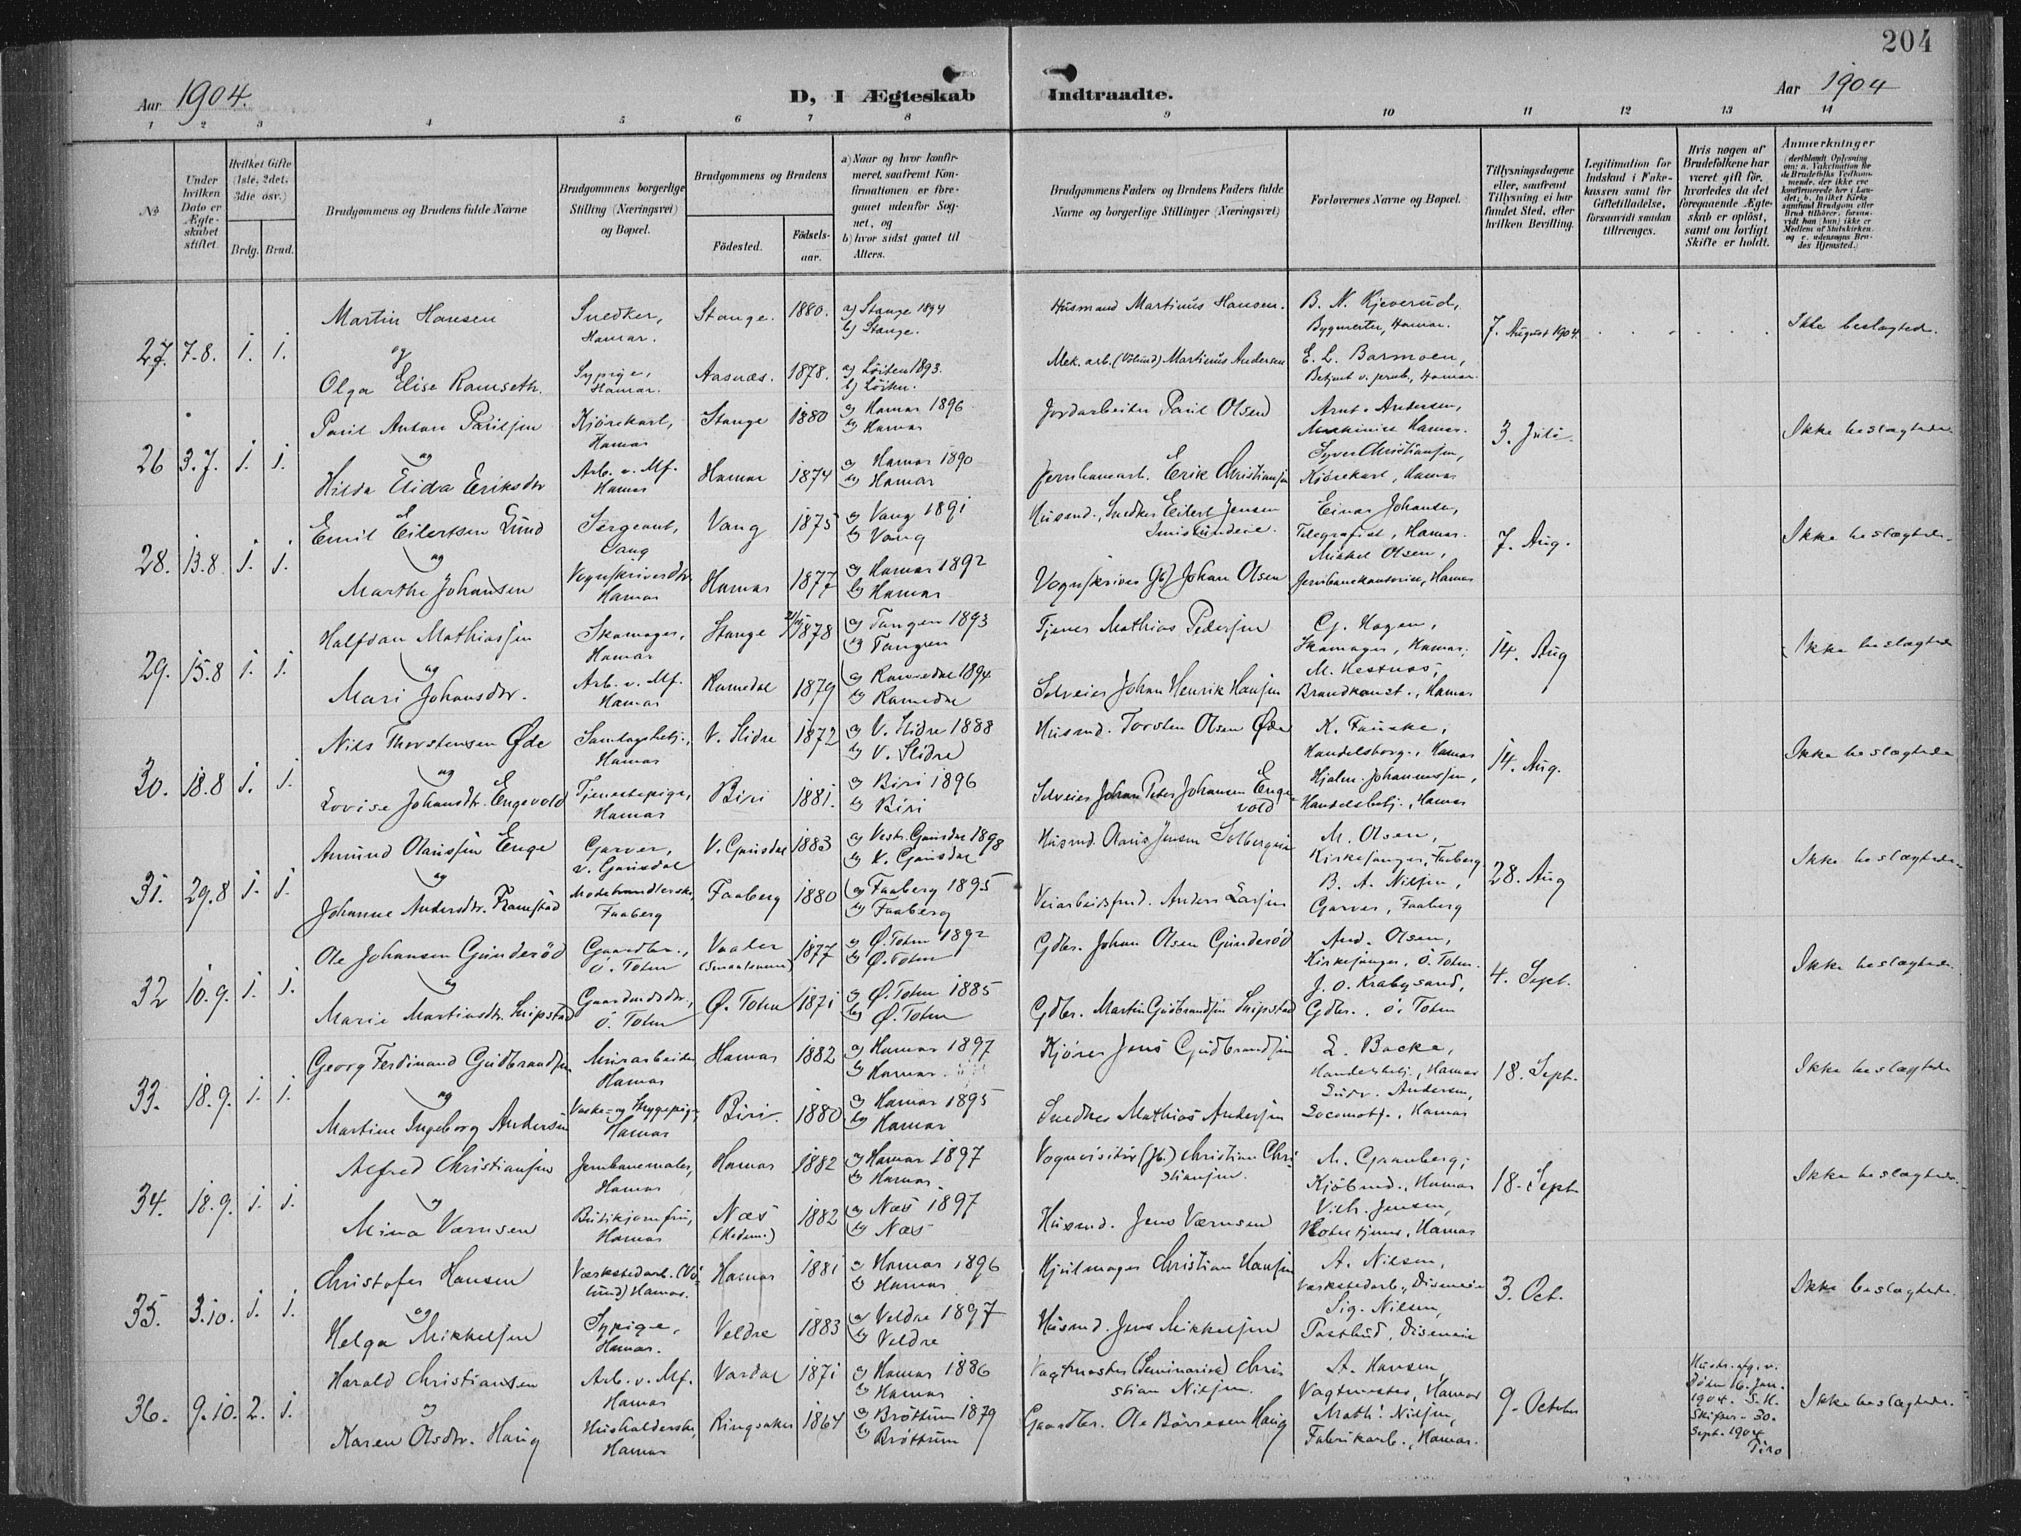 204
Aar 1904.
D, I Ægteskab Indtraadte.
Aar 1904
1 2 3 4 5 6 7 8 9 10 11 12 13 14
No
Under hvilken Dato er Ægteskabet stiftet.
Hvilket Gifte (1ste, 2det, 3die osv.)
Brdg. Brud.
Brudgommens og Brudens fulde Navne
Brudgommens borgerlige Stilling (Næringsvei) og Bopæl.
Brudgommens og Brudens
Fødested.
Fødselsaar.
a) Naar og hvor konfirmeret, saafremt Konfirmationen er foregaaet udenfor Sognet, og
b) hvor sidst gaaet til Alters.
Brudgommens Faders og Brudens Faders fulde Navne og borgerlige Stillinger (Næringsvei)
Forlovernes Navne og Bopæl.
Tillysningsdagene eller, saafremt Tillysning ei har fundet Sted, efter hvilken Bevilling.
Legitimation for Indskud i Enkekassen samt for Giftetilladelse, forsaavidt saadan tiltrænges.
Hvis nogen af Brudefolkene har været gift før, hvorledes da det foregaaende Ægteskab er opløst, samt om lovligt Skifte er holdt.
Anmærkninger
27. 7.8. 1. 1. Martin Hansen Snedker, Hamar. Stange. 1880. a) Stange 1894 b) Stange. Husmand Martinus Hansen. B. N. Kjeverud, Bygmester, Hamar. 7. August 1904. Ikke beslægtede.
og
Olga Elise Ramseth. Sypige, Hamar. Aasnæs. 1878. a) Løiten 1893. b) Løiten. Mek. arb. (Vølund) Martinus Andersen E. L. Barmoen, Betjent v. jernb., Hamar.
26 3.7. 1. 1. Paul Anton Paulsen Kjørekarl, Hamar Stange 1880 a) Hamar 1896 b) Hamar Jordarbeider Paul Olsen Arnt Andersen, Maskinist Hamar. 3. Juli Ikke beslægtede
og
Hilda Elida Eriksdtr Arb. v. Mf. Hamar Hamar 1874 a) Hamar 1890 b) Hamar Jernbanearb. Erik Christiansen Syver Christiansen, Kjørekarl, Hamar
28. 13.8 1. 1. Emil Eilertsen Lund Sergeant, Vang Vang 1875 a) Vang 1891 b) Vang Husmd., Snedker Eilert Jensen Einar Johansen, Telegrafist, Hamar. 7. Aug. Ikke beslægtede.
og
Marthe Johansen Vognskriverdtr Hamar Hamar 1877 a) Hamar 1892 b) Hamar Vognskriver (Jb) Johan Olsen Mikkel Olsen, Jernbanekontorist, Hamar
29. 15.8 1. 1. Halfdan Mathiassen Skomager, Hamar Stange 1878 a) Tangen 1893 b) Tangen Tjener Mathias Pedersen C. Hagen, Skomager, Hamar. 14. Aug Ikke beslægtede
og
Mari Johansdtr. Arb. v. Mf. Hamar Romedal 1879 a) Romedal 1894 b) Romedal Selveier Johan Henrik Hansen M. Hestnæs, Brandkonst., Hamar
30. 18.8 1. 1. Nils Thorstensen Øde Hamar V. Slidre 1872 a) V. Slidre 1888 b) V. Slidre Husmd. Torsten Olsen Øde K. Fauske, Handelsborg., Hamar 14. Aug. Ikke beslægtede
og
Lovise Johansdtr. Engevold Tjenestepige, Hamar Biri 1881. a) Biri 1896 b) Biri Selveier Johan Peter Johansen Engevold Hjalm. Johannessen, Handelsbetj., Hamar
31. 29.8 1. 1. Amund Olaussen Enge Garver, V. Gausdal V. Gausdal 1883 a) Vest. Gausdal 1898 b) V. Gausdal Husmd Olaus Jensen M. Olsen, Kirkesanger, Faaberg 28. Aug Ikke beslægtede
og
Johanne Andersdtr. Framstad Modehandlerske, Faaberg Faaberg 1880 a) Faaberg 1895 b) Faaberg Anders Larsen B. A. Nilsen, Garver, Faaberg
32 10.9. 1. 1. Ole Johansen Gunderød Gaardbr., Ø. Toten Vaaler (Smaalenene) 1877 a) Ø. Toten 1892 b) Ø. Toten Gdbr. Johan Olsen Gunderød And. Olsen, Kirkesanger, Ø. Toten. 4. Sept. Ikke beslægtede.
og
Marie Martinsdtr. Snipstad Ø. Toten Ø. Toten 1871 a) Ø. Toten 1885 b) Ø. Toten Gdbr. Martin Gudbrandsen Snipstad J. O. Krabysand, Gdbr., Ø. Toten
33. 18.9. 1. 1. Georg Ferdinand Gudbrandsen Murarbeider, Hamar Hamar 1882 a) Hamar 1897 b) Hamar. Kjører Jens Gudbrandsen L. Backe, Handelsbetj., Hamar 18. Sept. Ikke beslægtede
og
Martine Ingeborg Andersen Vaske- og Strygepige, Hamar Biri. 1880 a) Hamar 1895 b) Hamar Snedker Mathias Andersen Ludv. Andersen, Locomotf., Hamar
34. 18.9. 1. 1. Alfred Christiansen Jernbanemaler, Hamar Hamar 1882 a) Hamar 1897 b) Hamar. Vognvisitør (Jb.) Christian Christiansen. M. Granberg, Kjøbmd., Hamar 18. Sept Ikke beslægtede.
og
Mina Værnsen Butikjomfru, Hamar Næs (Hedem.) 1882 a) Næs 1897 b) Næs Husmd. Jens Værnsen Vilh. Jensen, Hamar
35. 3.10. 1. 1. Christofer Hansen Værkstedarb. (Vølund) Hamar. Hamar 1881 a) Hamar 1896 b) Hamar Hjulmager Christian Hansen A. Nilsen, Værkstedarb., Disenveien 3. Oct. Ikke beslægtede.
og
Helga Mikkelsen Sypige, Hamar. Veldre 1883 a) Veldre 1897 b) Veldre Husmd. Jens Mikkelsen Sig. Nilsen, Postbud, Disenveien
36. 9.10. 2. 1. Harald Christiansen Arb. v. Mf. Hamar Vardal 1871 a) Hamar 1886 b) Hamar Vagtmester (Seminariet) Christian Nilsen. A. Hansen, Vagtmester, Hamar 9. October Hustr. afg. v. Døden 16. Jan. 1904. Sept. 1904 Ikke beslægtede.
og
Karen Olsdtr. Haug Husholderske, Hamar Ringsaker 1864 a) Brøttum 1879 b) Brøttum Gaardbr. Ole Børresen Haug Math. Nilsen, Fabrikarb., Hamar.